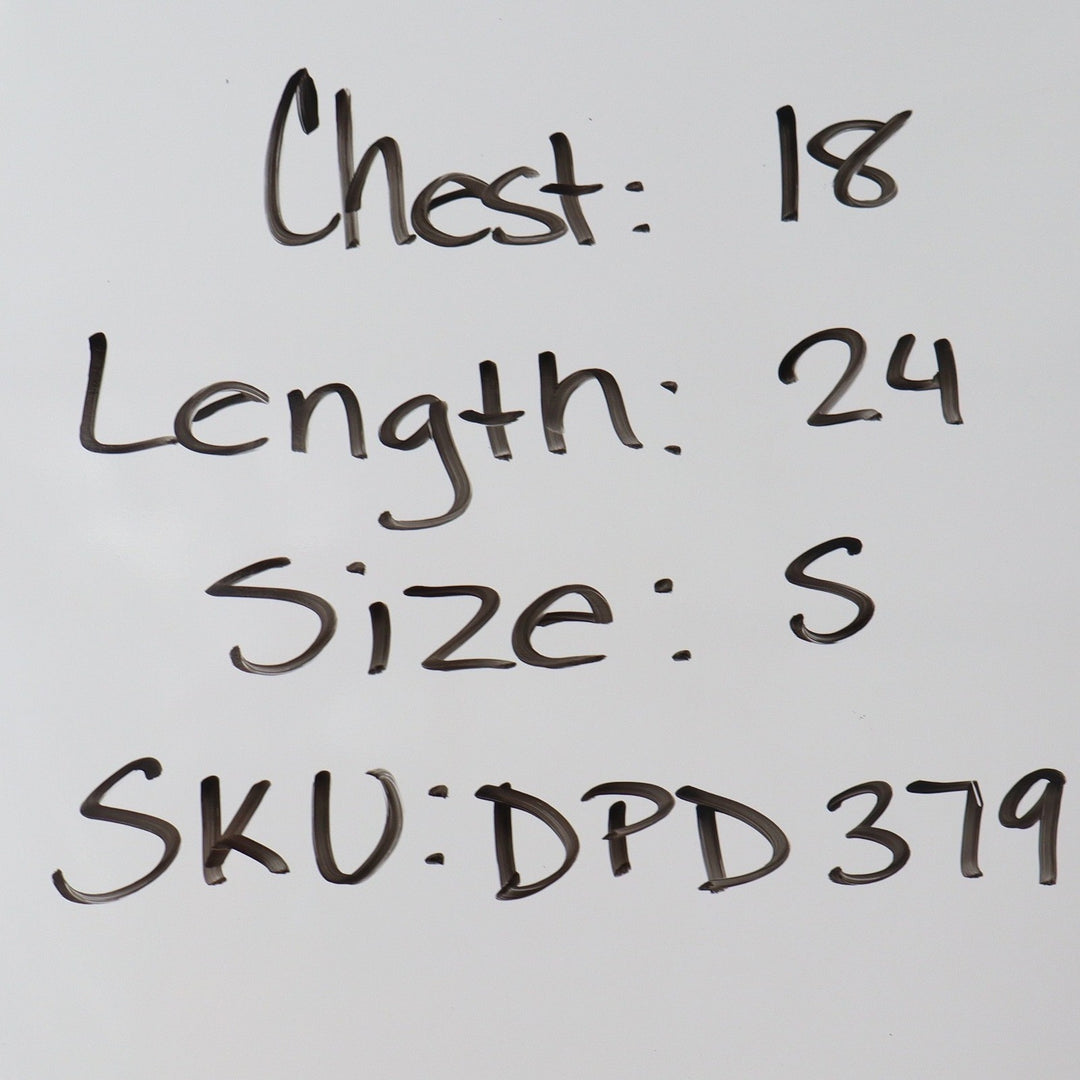 Chest: 18
Length: 24
Size: S
SKU: DPD379